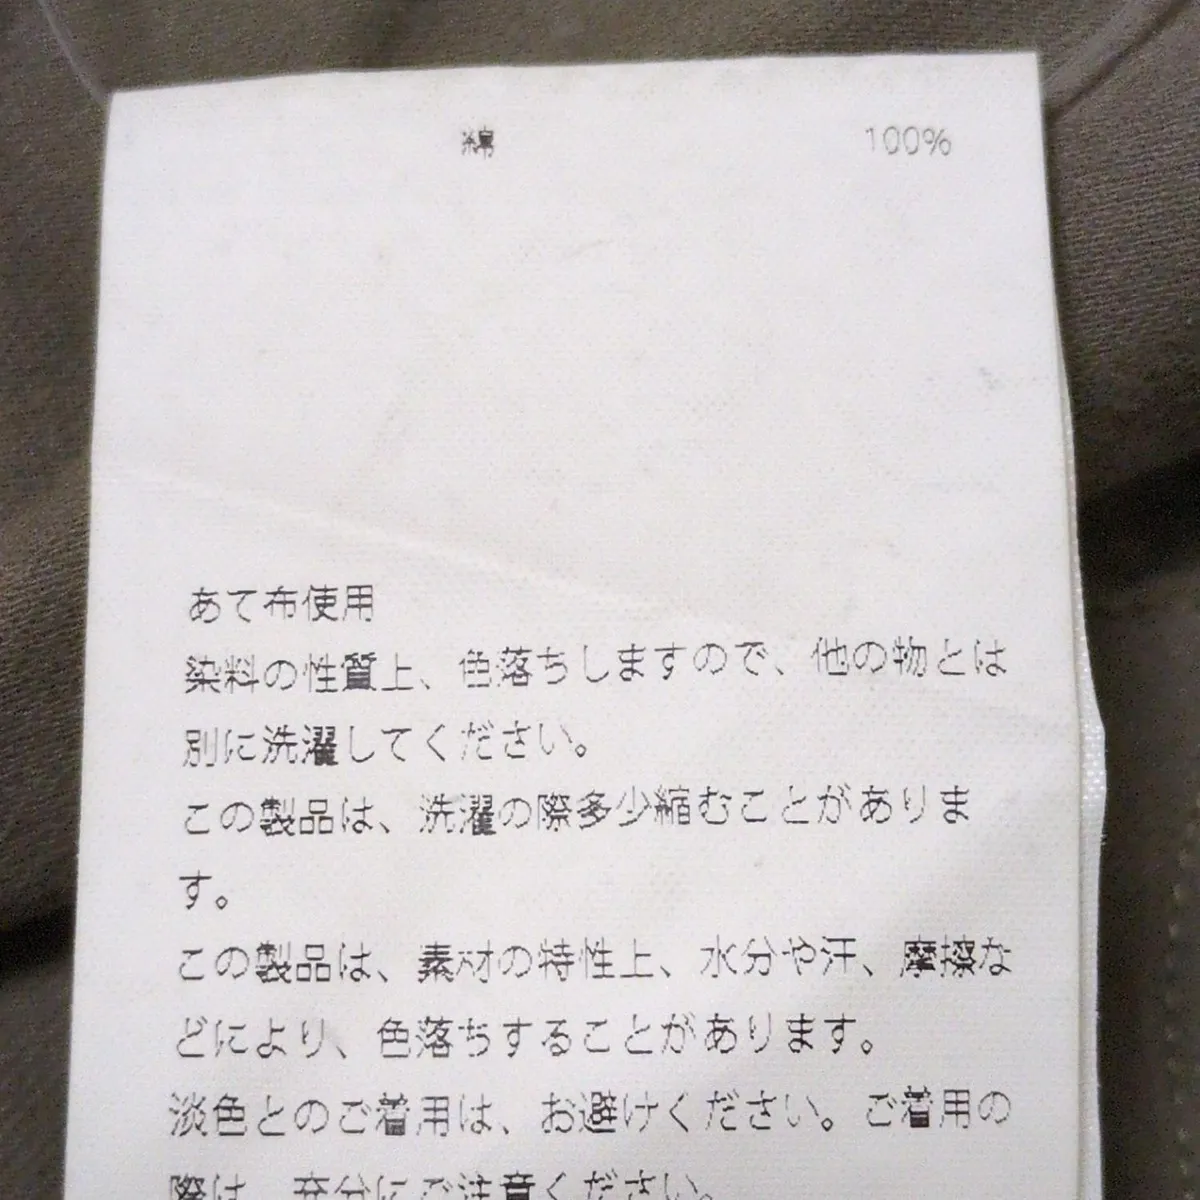 綿 100%
あて布使用
染料の性質上、色落ちしますので、他の物とは
別に洗濯してください。
この製品は、洗濯の際多少縮むことがありま
す。
この製品は、素材の特性上、水分や汗、摩擦な
どにより、色落ちすることがあります。
淡色とのご着用は、お避けください。ご着用の
際は、充分にご注意ください。